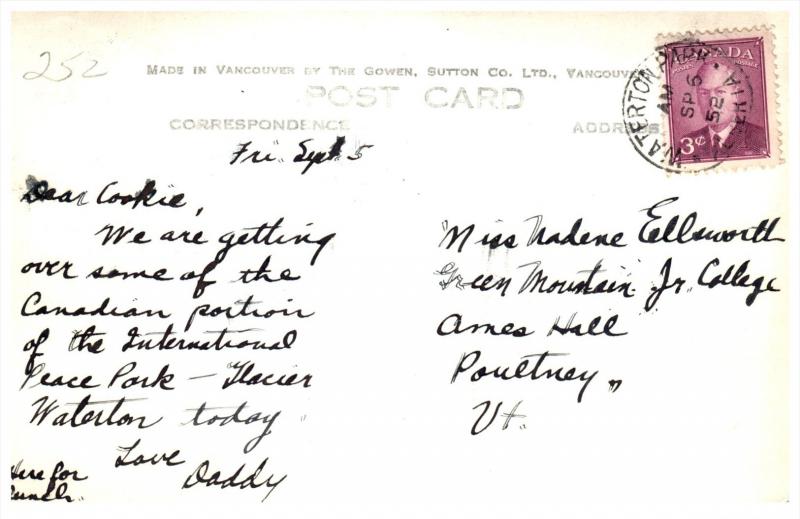 252
MADE IN VANCOUVER BY THE GOWEN, SUTTON CO. LTD., VANCOUVE
POST CARD
CORRESPONDENCE
ADDRESS
CANADA
POSTES POSTAGE
3¢
WATERTON PARK
AM
SP 6
52
ALBERTA
Fri. Sept. 5
Dear Cookie,
We are getting
over some of the
Canadian portion
of the International
Peace Park — Glacier
Waterton today.
Love
Daddy
Here for
lunch.
Miss Nadene Ellsworth
Green Mountain Jr. College
Ames Hall
Poultney,
Vt.